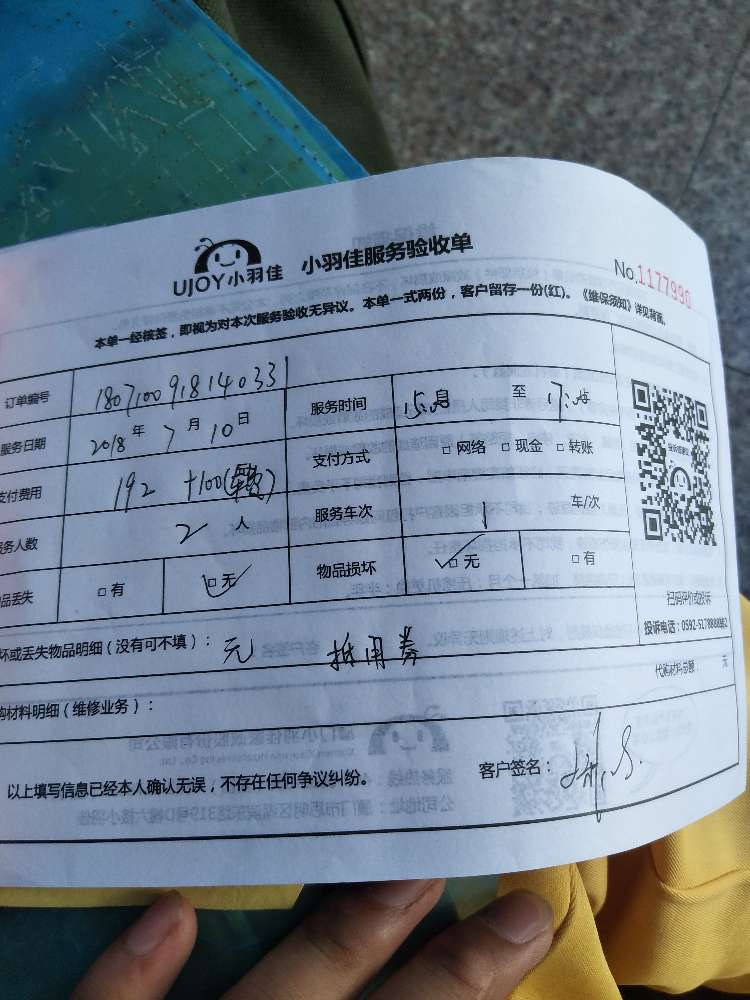 UJOY小羽佳 小羽佳服务验收单
No.1177990
本单一经核签，即视为对本次服务验收无异议。本单一式两份，客户留存一份(红)。《维保须知》详见背面。
订单编号 180710091814033 服务时间 至
服务日期 2018 年 7 月 10 日 支付方式 □ 网络 □ 现金 □ 转账
支付费用 192 +100
服务人数 2 人 服务车次 1 车/次
品丢失 □ 有 □ 无 物品损坏 □ 无 □ 有
扫码评价或投诉
投诉电话：0592-5278888转2
坏或丢失物品明细（没有可不填）： 元 抵用券
代购材料总额： 元
购材料明细（维修业务）：
以上填写信息已经本人确认无误，不存在任何争议纠纷。 客户签名：